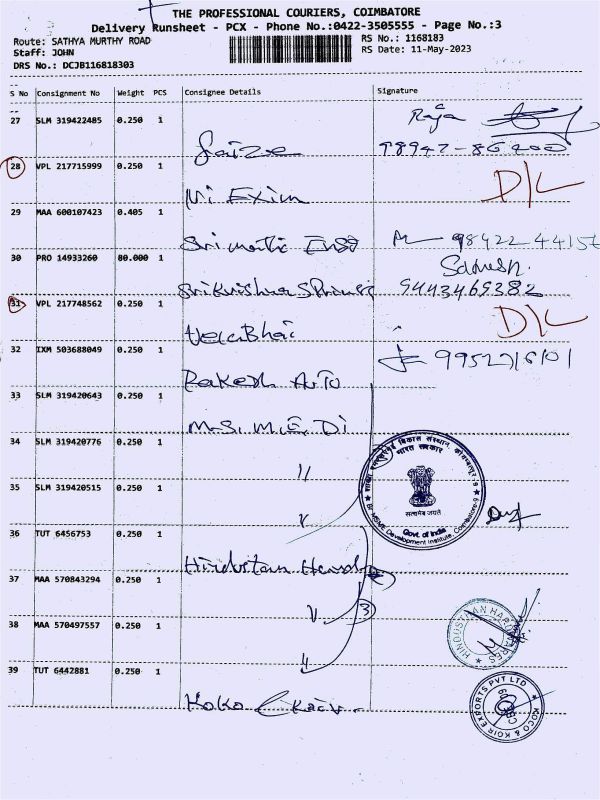 THE PROFESSIONAL COURIERS, COIMBATORE
Delivery Runsheet - PCX - Phone No.:0422-3505555 - Page No.:3
Route: SATHYA MURTHY ROAD
Staff: JOHN
DRS No.: DCJB116818303
RS No.: 1168183
RS Date: 11-May-2023
S No Consignment No Weight PCS Consignee Details Signature
27 SLM 319422485 0.250 1 Raja
28 VPL 217715999 0.250 1 D/L
Ni Exim
29 MAA 600107423 0.405 1
Srimatic 98422 44156
30 PRO 14933260 80.000 1
Srikrishna 9443469382
31 VPL 217748562 0.250 1 D/L
VelaBhai
32 IXM 503688049 0.250 1
Rakesh Auto
33 SLM 319420643 0.250 1
M.S.M.E. DI
34 SLM 319420776 0.250 1
〃
35 SLM 319420515 0.250 1
36 TUT 6456753 0.250 1
Hindustan Hardware
37 MAA 570843294 0.250 1
3
38 MAA 570497557 0.250 1
39 TUT 6442881 0.250 1
भारत सरकार
सत्यमेव जयते
Govt. of India
MSME Development Institute, Coimbatore-9
HINDUSTHAN HARDWARES
KOCO & KOIR EXPORTS PVT LTD